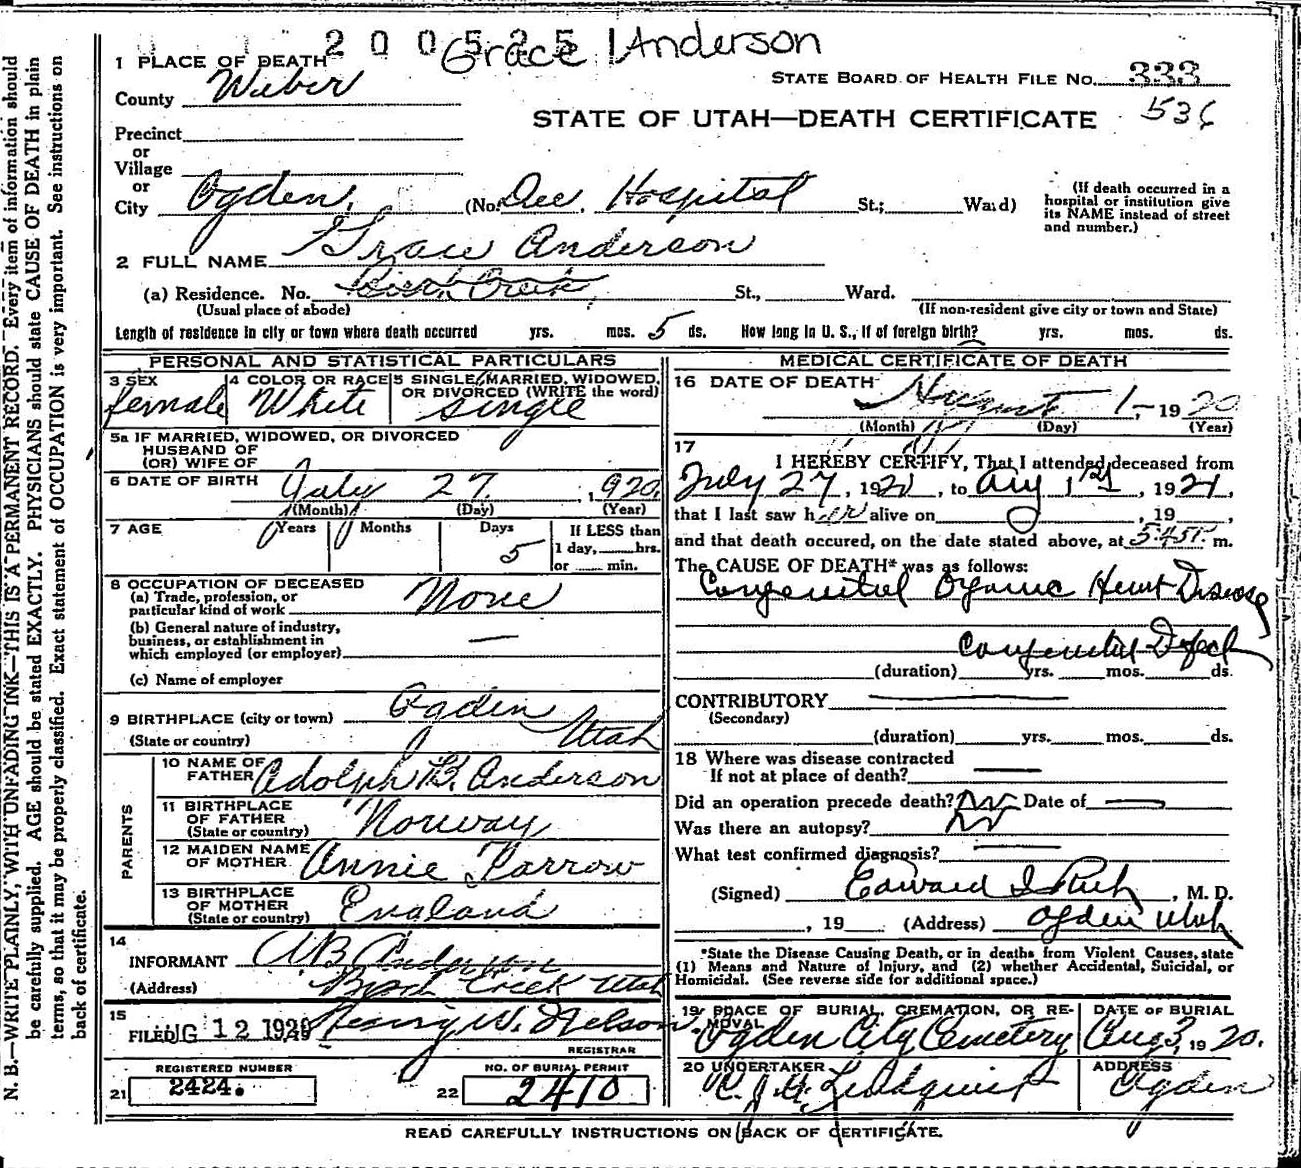 2 0 0 5 2 5
Grace Anderson
1 PLACE OF DEATH
STATE BOARD OF HEALTH FILE No. 333
County Weber
STATE OF UTAH—DEATH CERTIFICATE 536
Precinct
or
Village
or
City Ogden. (No. Dee Hospital St.; Ward)
(If death occurred in a hospital or institution give its NAME instead of street and number.)
2 FULL NAME Grace Anderson
(a) Residence. No. Birch Creek St., Ward.
(Usual place of abode) (If non-resident give city or town and State)
Length of residence in city or town where death occurred yrs. mos. 5 ds. How long in U. S., if of foreign birth? yrs. mos. ds.
PERSONAL AND STATISTICAL PARTICULARS
3 SEX 4 COLOR OR RACE 5 SINGLE, MARRIED, WIDOWED, OR DIVORCED (WRITE the word)
female White single
5a IF MARRIED, WIDOWED, OR DIVORCED
HUSBAND OF
(OR) WIFE OF
6 DATE OF BIRTH July 27. 1920.
(Month) (Day) (Year)
7 AGE Years Months Days If LESS than
5 1 day, hrs.
or min.
8 OCCUPATION OF DECEASED
(a) Trade, profession, or
particular kind of work None
(b) General nature of industry,
business, or establishment in
which employed (or employer) —
(c) Name of employer
9 BIRTHPLACE (city or town) Ogden
(State or country) Utah
PARENTS
10 NAME OF
FATHER Adolph B. Anderson
11 BIRTHPLACE
OF FATHER
(State or country) Norway
12 MAIDEN NAME
OF MOTHER Annie Farrow
13 BIRTHPLACE
OF MOTHER
(State or country) England
14
INFORMANT AB Anderson
(Address) Birch Creek Utah
15
FILED AUG 12 1920 Henry W. Nelson
REGISTRAR
REGISTERED NUMBER NO. OF BURIAL PERMIT
21 2424. 22 2410
MEDICAL CERTIFICATE OF DEATH
16 DATE OF DEATH August 1, 1920
(Month) (Day) (Year)
17
I HEREBY CERTIFY, That I attended deceased from
July 27, 1920, to Aug 1st, 1921,
that I last saw her alive on , 19 ,
and that death occured, on the date stated above, at m.
The CAUSE OF DEATH* was as follows:
Congenital Organic Heart Disease
Congenital Defect
(duration) yrs. mos. ds.
CONTRIBUTORY —
(Secondary)
(duration) yrs. mos. ds.
18 Where was disease contracted
If not at place of death? —
Did an operation precede death? No Date of —
Was there an autopsy? No
What test confirmed diagnosis? —
(Signed) Edward I Rich, M. D.
, 19 (Address) Ogden Utah
*State the Disease Causing Death, or in deaths from Violent Causes, state
(1) Means and Nature of Injury, and (2) whether Accidental, Suicidal, or
Homicidal. (See reverse side for additional space.)
19 PLACE OF BURIAL, CREMATION, OR REMOVAL DATE OF BURIAL
Ogden City Cemetery Aug 3, 1920.
20 UNDERTAKER ADDRESS
Lindquist Ogden
READ CAREFULLY INSTRUCTIONS ON BACK OF CERTIFICATE.
N. B.—WRITE PLAINLY, WITH UNFADING INK—THIS IS A PERMANENT RECORD. Every item of information should
be carefully supplied. AGE should be stated EXACTLY. PHYSICIANS should state CAUSE OF DEATH in plain
terms, so that it may be properly classified. Exact statement of OCCUPATION is very important. See instructions on
back of certificate.